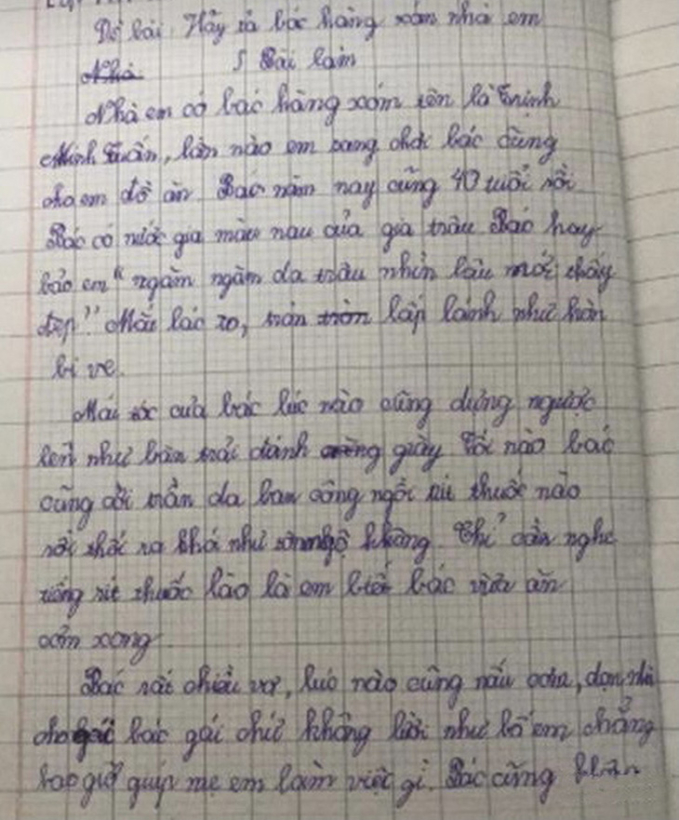 Đề bài Hãy tả bác hàng xóm nhà em
Nhà
Bài làm
Nhà em có bác hàng xóm tên là Trịnh
Minh Tuấn, lần nào em sang chơi bác cũng
cho em đồ ăn. Bác năm nay cũng 40 tuổi rồi
Bác có nước gia màu nau của gia trâu Bác hay
bảo em " ngăm ngăm da trâu nhìn lâu mới thấy
đẹp" Mắt bác to, tròn lấp lánh như hòn
bi ve.
Mái tóc của bác lúc nào cũng dựng ngược
lên như bàn trải đánh giày Tối nào bác
cũng cởi trần da ban công ngồi rít thuốc nào
rồi thổi ra khói như khủng. Chỉ cần nghe
tiếng rít thuốc lào là em biết bác vừa ăn
cơm xong
Bác rất chiều vợ, lúc nào cũng nấu cơm, dọn nhà
cho bác gái chứ không lười như bố em chẳng
bao giờ giúp mẹ em làm việc gì. Bác cũng